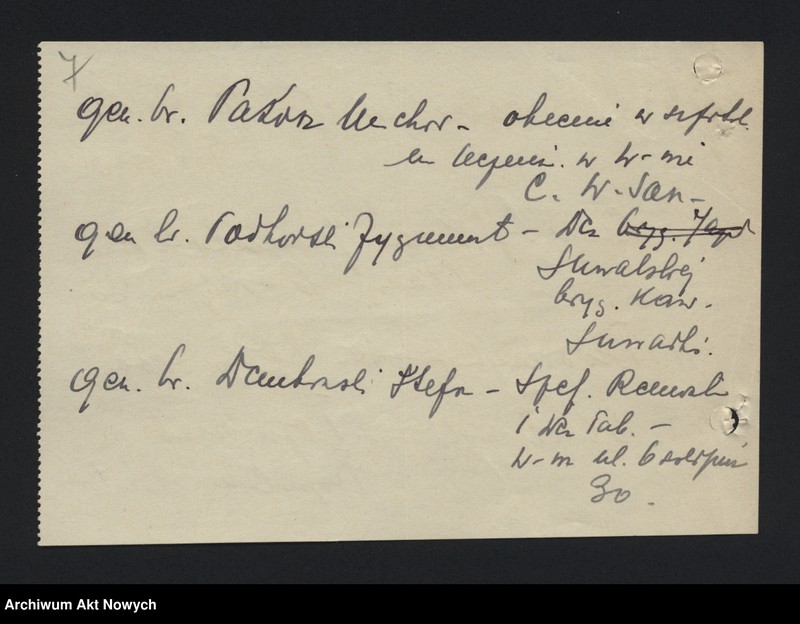 7
gen. br. Pakosz Melchior - obecnie w szpital
na leczeni. w W-wie
C. W. San -
gen br. Podhorski Zygmunt - Dca bryg.
Suwalskiej
bryg. Kaw.
Suwałki.
gen. br. Dembiński Stefan - Szef. Remontu
i Dca Tab. -
W-wa ul. 6 sierpnia
30.
Archiwum Akt Nowych